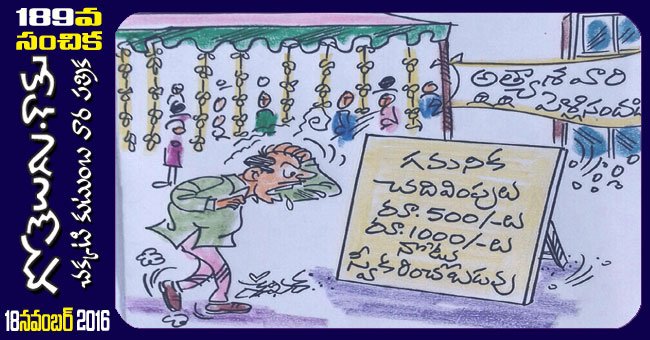 189వ
సంచిక
గోతెలుగు.కామ్
చక్కటి కుటుంబ వార పత్రిక
18నవంబర్ 2016
అత్యాశ వారి
పెళ్లిసందడి
గమనిక
చదివింపులు
రూ.500/-లు
రూ.1000/-లు
నోట్లు
స్వీకరించబడవు